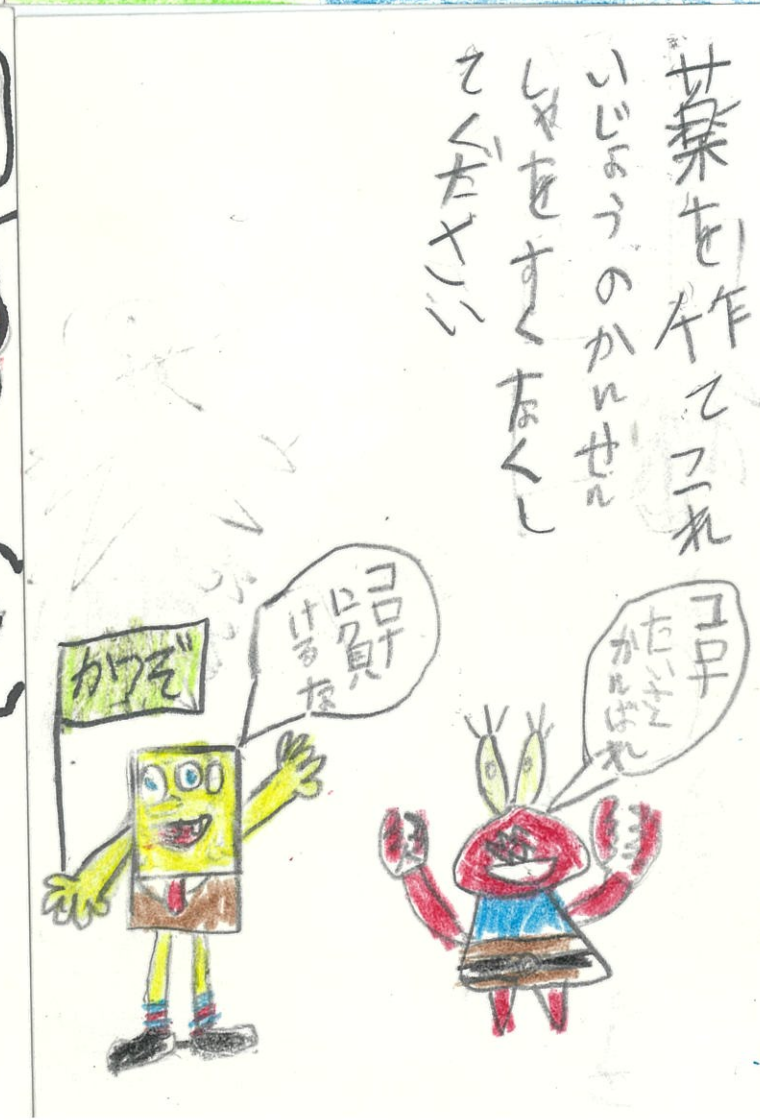 薬を作てこれ
いじょうのかんせん
しゃをすくなくし
てぐたさい
コロナ
たいさく
がんばれ
コロナ
に負
けるな
かつぞ